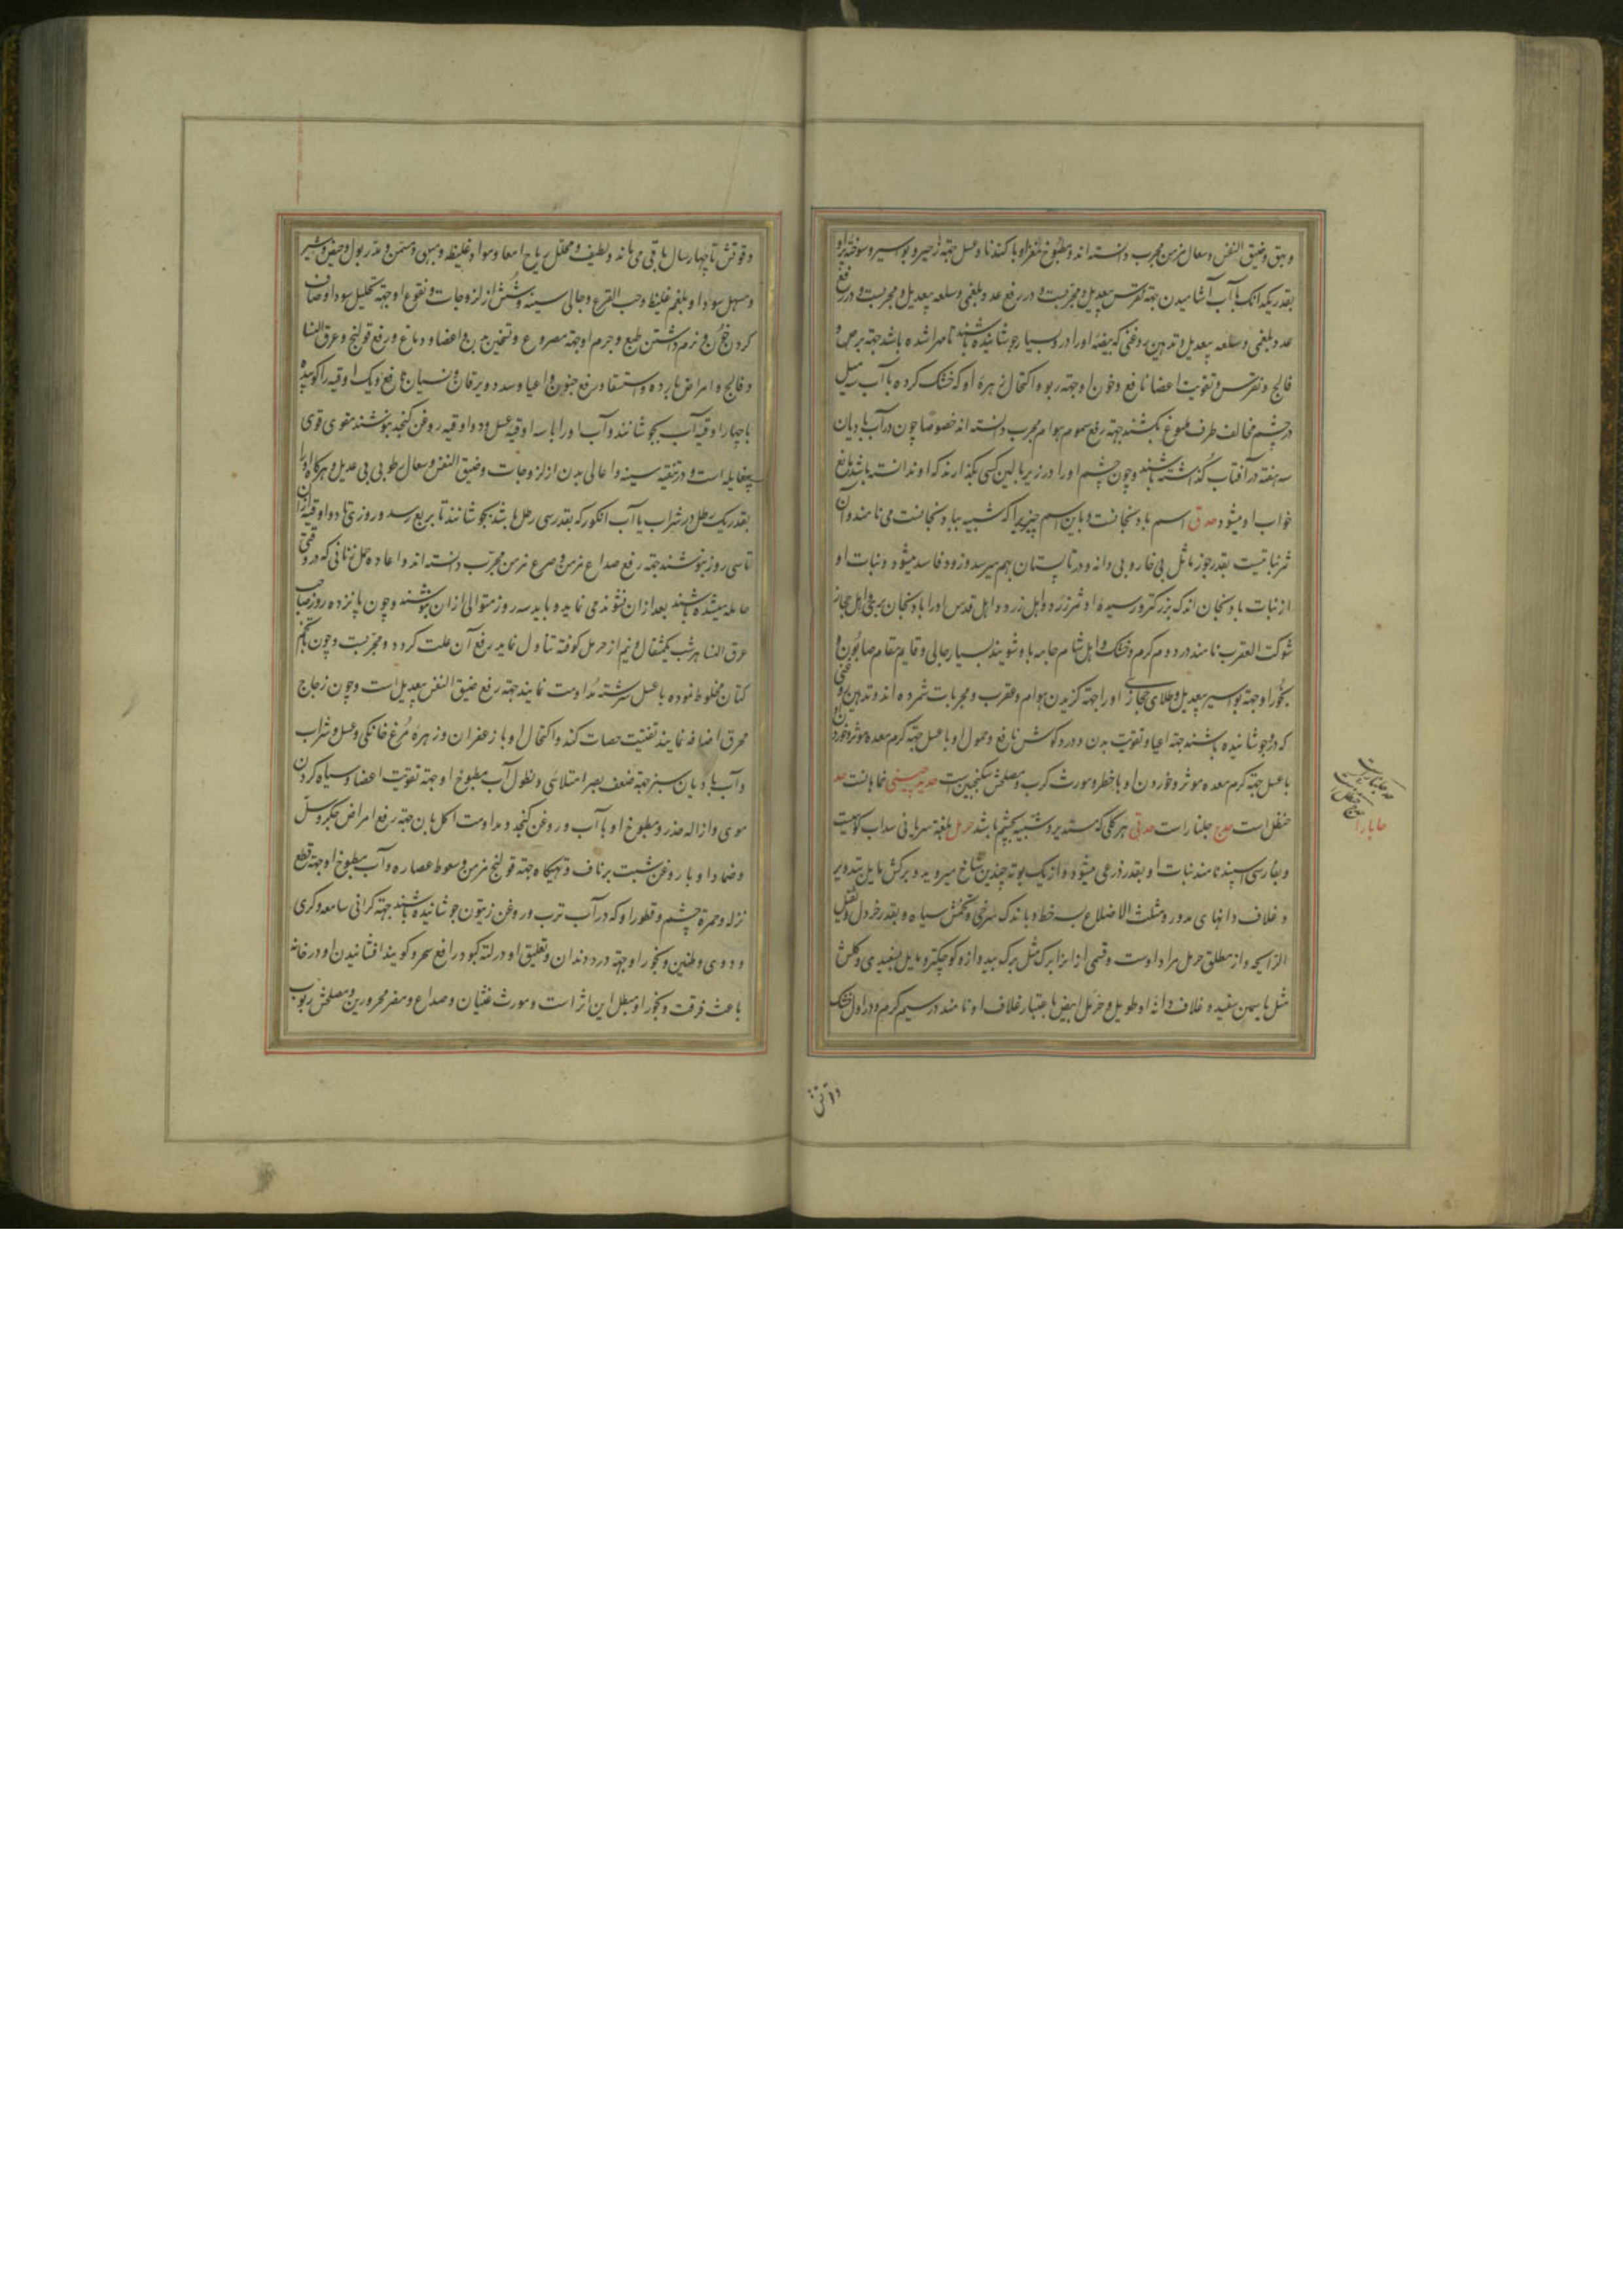 و بهق و ضیق النفس و سعال مزمن مجرب دانسته اند و مطبوخ مغز او با کندنا و عسل جهة زحیر و بواسیر و سوخته پر او
بقدر یکدانک با آب آشامیدن جهة نقرس بیعدیل و مجربست و در رفع غدد بلغمی و سلعه بیعدیل و مجربست و در رفع
غدد بلغمی و سلعه بیعدیل و تدهین روغنی که بیضهٔ او را در و بسیار جوشانیده باشند تا مهرا شده باشد جهة برص و
فالج و نقرس و تقویت اعضا نافع و خون او جهة ربو و اکتحال زهرهٔ او که خشک کرده با آب سه میل
در چشم مخالف طرف ملسوع بکشند جهة رفع سموم هوام مجرب دانسته اند خصوصا چون در آب بادیان
سه هفته در آفتاب گذاشته باشند و چون چشم او را در زیر بالین کسی بگذارند که او ندانسته باشد مانع
خواب او میشود حدق اسم بادنجانست و باین اسم چیزیرا که شبیه ببادنجانست می نامند و آن
ثمر نباتیست بقدر جوز ماثل بی خار و بی دانه و در تابستان بهم میرسد و زود فاسد میشود و نبات او
از نبات بادنجان اندک بزرکتر و رسیدهٔ او ثمر زرد و اهل زرد و اهل قدس او را بادنجان بری و اهل حجاز
شوکت العقرب نامند در دوم کرم و خشک و اهل شام جامه باو شویند بسیار جالی و قایم مقام صابون و
بخور او جهة بواسیر بیعدیل و طلای حجازی او را جهة کزیدن هوام و عقرب و مجربات شمرده اند و تدهین روغنی
که درو جوشانیده باشند جهة اعیا و تقویت بدن و درد کوش نافع و حمول او با عسل جهة کرم معده موثر و خوردن
با عسل جهة کرم معده موثر و خوردن او با خطر و مورث کرب و مصلحش سکنجبین است حدید چینی خماهانست حد
حنظل است حدج جلنار است حدقی هر کلی که مستدیر و شبیه بچشم باشد حرمل بلغة سریانی سداب کوهیست
و بفارسی اسپند نامند نبات او بقدر ذرعی میشود و از یک بوته چندین شاخ میروید و برکش مایل بتدویر
و غلاف دانهای مدور و مثلث الاضلاع بسه خط و باندک سرخی و تخمش سیاه و بقدر خردل و ثقیل
الرایحه و از مطلق حرمل مراد اوست و قسمی از آنرا برک مثل برک بید و از و کوچکتر و مایل بسفیدی و کلش
مثل یاسمین سفید و غلاف دانهٔ او طویل و حرمل ابیض باعتبار غلاف او نامند در سیم کرم و در اول خشک
حنظل است
و قوتش تا چهار سال باقی می ماند و لطیف و محلل ریاح امعا و مواد غلیظه و مبهی و مسمن و مدر بول و حیض و شیر
و مسهل سودا و بلغم غلیظ و حب القرع و جالی سینه و شش از لزوجات و نقوع او جهة تحلیل سودا و صاف
کردن خون و نرم داشتن طبع و جرم او جهة مصروع و تسخین بدن و اعضا و دماغ و رفع قولنج و عرق النسا
و فالج و امراض بارده و استسقا و رفع جنون و اعیا و سدد و یرقان و نسیان نافع و یک اوقیه را کوبیده
با چهار اوقیه آب بجوشانند و آب او را با سه اوقیه عسل و دو اوقیه روغن کنجد بنوشند مقوی قوی
بیغایله است و در تنقیه سینه و اعالی بدن از لزوجات و ضیق النفس و سعال رطوبی بی عدیل و هرکاه او را
بقدر یک رطل در شراب یا آب انکور که بقدر سی رطل باشد بجوشانند تا بربع رسد و روزی تا دو اوقیه از آن
تا سی روز بنوشند جهة رفع صداع مزمن و صرع مزمن مجرب دانسته اند و اعاده حمل زنانی که در وقتی
حامله میشده باشند بعد از آن نشوند می نماید و باید سه روز متوالی از آن بنوشند و چون پانزده روز صاحب
عرق النسا هر شب یکمثقال و نیم از حرمل کوفته تناول نماید رفع آن علت کردد و مجربست و چون با تخم
کتان مخلوط نموده با عسل سرشته مداومت نمایند جهة رفع ضیق النفس بیعدیل است و چون زجاج
محرق اضافه نمایند تفتیت حصات کند و اکتحال او با زعفران و زهرهٔ مرغ خانکی و عسل و شراب
و آب بادیان سبز جهة ضعف بصر امتلائی و نطول آب مطبوخ او جهة تقویت اعضا و سیاه کردن
موی و ازاله خدر و مطبوخ او با آب و روغن کنجد و مداومت اکل بان جهة رفع امراض جکر و سل
و ضماد او با روغن شبت بر ناف و تهیکاه جهة قولنج مزمن و سعوط عصاره و آب مطبوخ او جهة قطع
نزله و حمرة چشم و قطور او که در آب ترب و روغن زیتون جوشانیده باشند جهة کرانی سامعه و کری
و دوی و طنین و بخور او جهة درد دندان و تعلیق او در لته کبود رافع سحر و کویند افشانیدن او در خانه
باعث فرقت و بخور او مبطل این اثر است و مورث غثیان و صداع و مضر محرورین و مصلحش ربوب